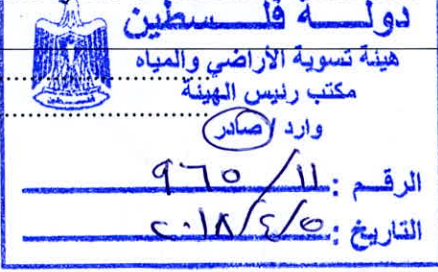 دولـــة فلـــسطين
هيئة تسوية الأراضي والمياه
مكتب رئيس الهيئة
وارد / صادر
الرقم : ٩٦٥/١١
التاريخ : ٢٠١٨/٤/٥
فلسطين